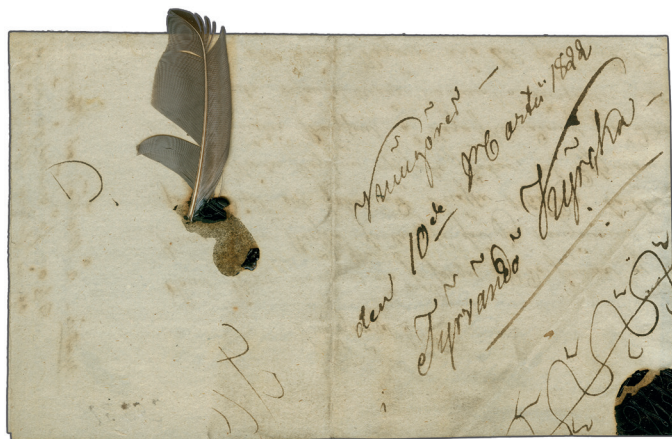 Kungöres –
den 10de Martii 1822
Tyrvändö Kyrcka –